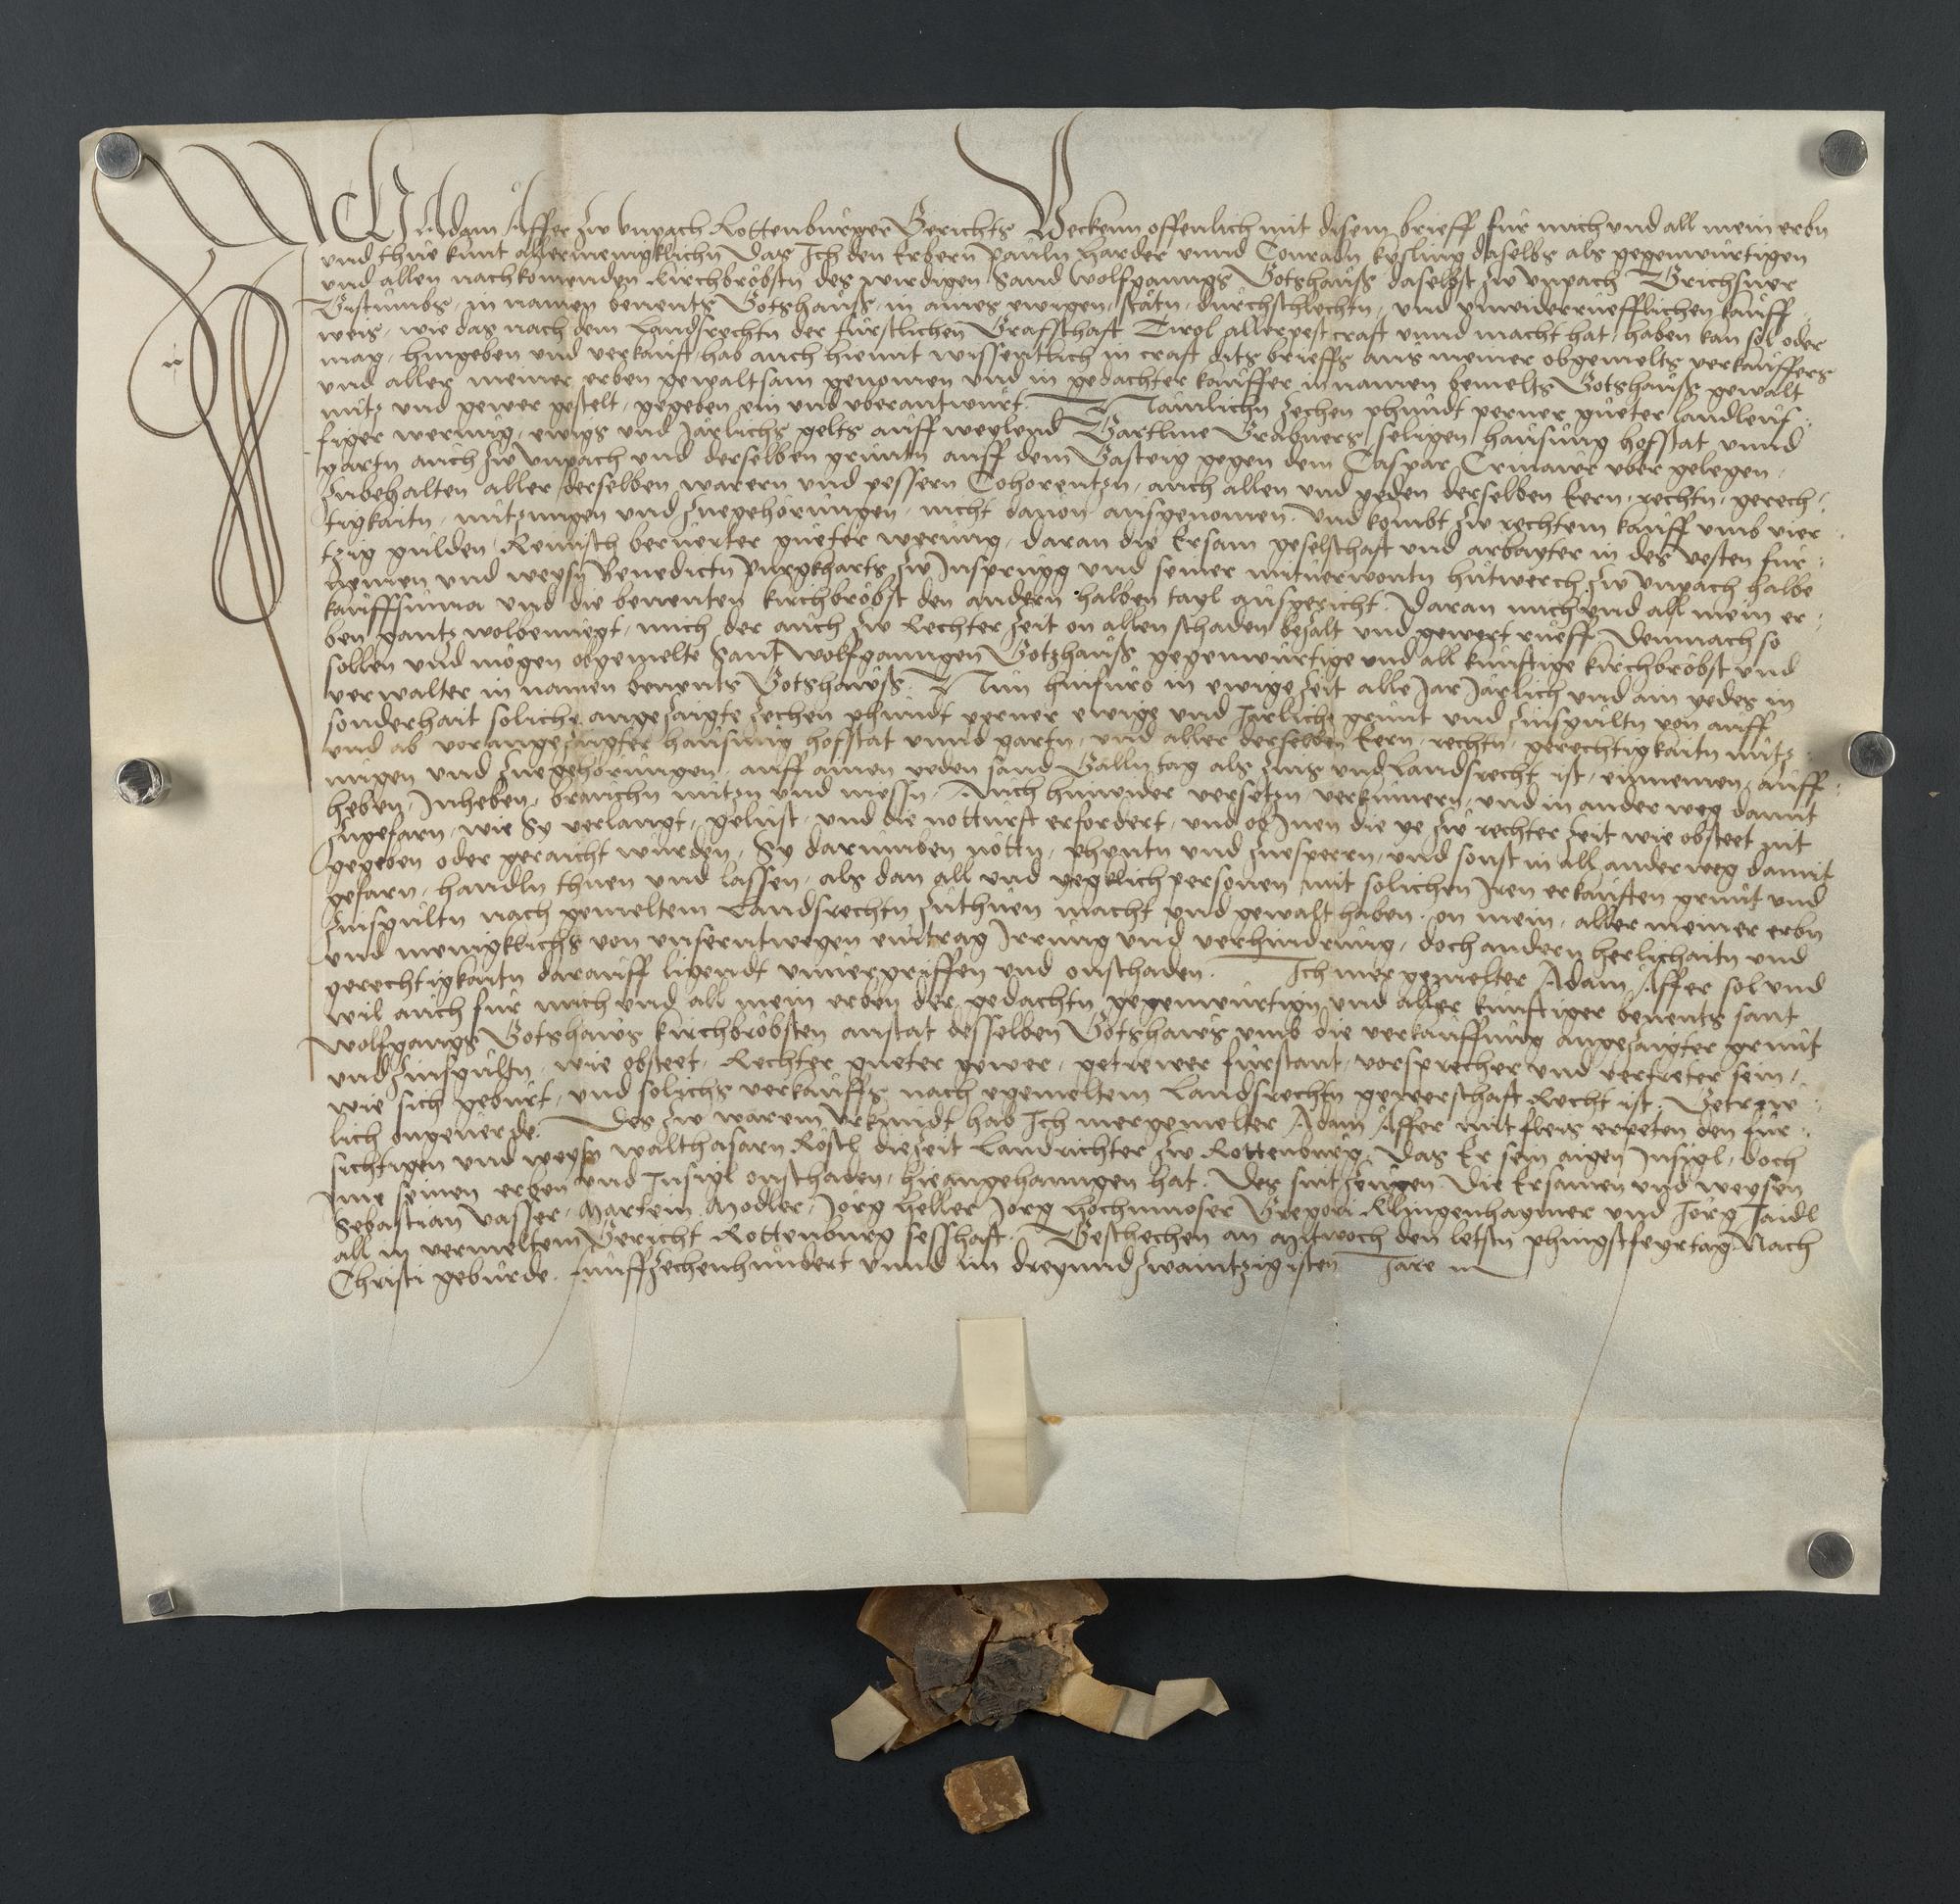 Ich Adam Affer zw Unpach Rottenburger Gerichts Beckenn offenlich mit disem brieff für mich und all mein erbn
und thue kunt allermenigklichn Das Ich den Erbern Pauln Harder unnd Conradn kysling daselbs als gegenwurtigen
und allen nachkomenden Kirchbröbstn des wirdigen Sand Wolfganngs Gotshauss daselbst zw Unpach Brichsner
Bistumbs, in namen benents Gotshauss, in aines ewigen, stätn, durchschlechtn, und unwiderruefflichen kauff
weis, wie das nach dem Landsrechtn der fürstlichen Grafschaft Tirol allerpest craft unnd macht hat, haben kan sol oder
mag, hingeben und verkauft, hab auch hiemit wissentlich in craft dits brieffs aus meiner obgemelts verkauffers
und aller meiner erben gewaltsam genomen und in gedachter kauffer in namen bemelts Gotshauss gewalt
nutz und gewer gestelt, gegeben ein und uberantwurt. Nämlichn zechen phundt perner gueter landleuf
figer werung, ewigs und Järlichs gelts auff weylend Bartlme Grabners seligen hausung hofstat unnd
gartn auch zw Unpach und derselben gruntn auff dem Gasteig gegen dem Caspar uber gelegen,
zubehalten aller derselben warern und pessern Cohorentzn, auch allen und yeden derselben Eern, rechtn, gerech,
tigkaitn, nutzungen und zuegehörungen, nicht davon ausgenomen. Und kombt zw rechtem kauff umb vier
tzig gulden Reinisch beruerter gueter werung, daran die Ersam geselschaft und arbayter in des Vesten für
nemen und weysn Benedictn Purgkharts zw Insprugg und seiner mituerwontn hutwerch zw Unpach halbe
kauffsuma und die benenten kirchbröbst den andern halben tayl ausgericht. Daran mich und all mein er,
ben gantz wolbenuegt, mich der auch zw Rechter zeit on allen schaden bezalt und gewert rueff. Demnach so
sollen und mögen obgemelte Sant Wolfganngen Gotzhauss gegenwurtige und all kunftige kirchbröbst und
verwalter in namen benents Gotshauss. Nun hinfuro in ewige zeit alle Jar Järlich und ain yedes in
sonderhait soliche angezaigte zechen phundt perner ewige und Järliche grunt und zinsgultn von auff
und ab vorangezaigter hausung hofstat unnd gartn, und aller derselben Eern, rechtn, gerechtigkaitn nutz,
ungen und zuegehörungen, auff ainen yeden sand Gälln tag als zins und Landsrecht ist, einnemen, auff,
heben, Inheben, brauchn nutzn und niessn, Auch hinwider versetzn, verkümern, und in ander weg damit
zugefarn, wie Sy verlangt, gelust, und die notturft erfordert, und ob Inen die ye zw rechter zeit wie obsteet nit
gegeben oder geraicht wurden, Sy darumben nöttn, phentn und zuesperrn, und sonst in all ander weg damit
gefarn, handln thuen und lassen, als dan all und yegklich personen mit solichen Iren erkauften grunt und
zinsgultn nach gemeltem Landsrechtn zuthuen macht und gewalt haben, on mein, aller meiner erbn
und menigklichs von unserntwegen eintrag Irrung und verhindrung, doch andern herlichaitn und
gerechtigkaitn darauff ligendt unuergriffen und onschaden. Ich mergemelter Adam Affer sol und
wil auch für mich und all mein erben der gedachtn gegenwurtign und aller kunftiger benents sant
Wolfgangs Gotshaus kirchbröbsten anstat desselben Gotshaus umb die verkauffung angezaigter grunt
und zinsgultn, wie obsteet, Rechter gueter gewer, getrewer fürstant, vorsprecher und vertreter sein,
wie sich geburt, und solichs verkauffs nach egemeltem Landsrechtn gewerschaft Recht ist. Getrew
lich ongeuerde. Des zw warem Urkundt hab Ich mergemelter Adam Affer mit fleis erpeten den für,
sichtigen und weysn Walthasarn Röstl dieZeit Landrichter zw Rottenburg, Das Er sein aigen Insigl, doch
ime seinen erben und Insigl onschaden, hieangehanngen hat. Des sint zeugen. Die Ersamen und weysen
Sebastian Vasser, Martein Modler, Jörg Heller Jorg Hochmoser Gregori Klingenhaymer und Jörg Taidl
all in vermeltem Gericht Rottenburg sesshaft. Beschechen an Mitwoch den letstn phingstfeyrtag. Nach
Christi geburde. funffzechenhundert unnd im dreyundzwaintzigisten Jare